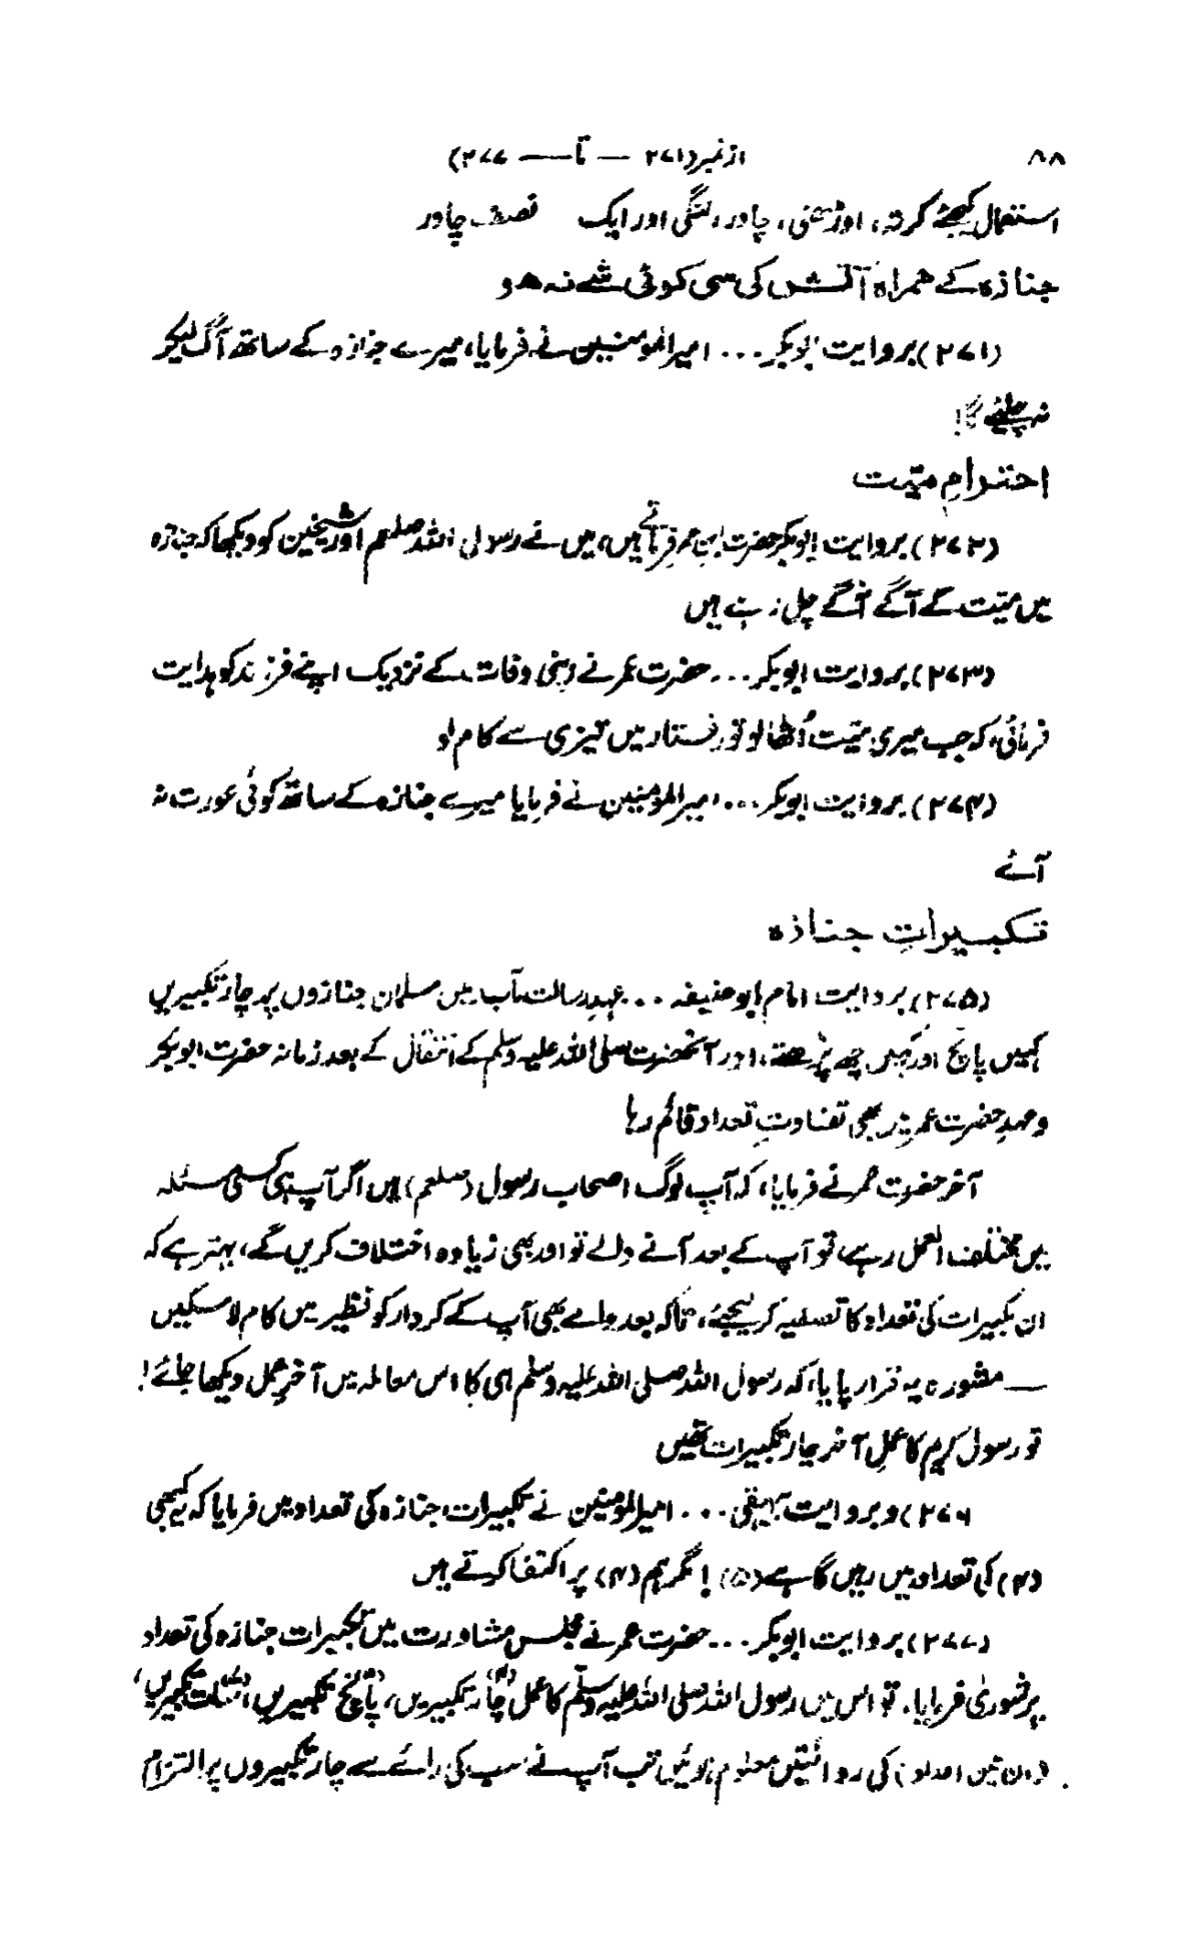 ۸۸ از نمبر (۲۷۱ — تا — ۲۷۷)
استعمال کیجئے کرتہ، اوڑھنی، چادر، لنگی اور ایک نصف چادر
جنازہ کے ہمراہ آتش کی سی کوئی شے نہ ہو
(۲۷۱) بروایت ابوبکر ... امیرالمومنین نے فرمایا، میرے جنازہ کے ساتھ آگ لیکر
نہ چلئے گا!
احترامِ میّت
(۲۷۲) بروایت ابوبکر حضرت ابن عمر فرماتے ہیں، میں نے رسول اللہ صلعم اور شیخین کو دیکھا کہ جنازہ
میں میّت کے آگے آگے چل رہے ہیں
(۲۷۳) بروایت ابوبکر ... حضرت عمر نے اپنی وفات کے نزدیک اپنے فرزند کو ہدایت
فرمائی، کہ جب میری میّت اُٹھا لو تو رفتار میں تیزی سے کام لو
(۲۷۴) بروایت ابوبکر ... امیرالمؤمنین نے فرمایا میرے جنازہ کے ساتھ کوئی عورت نہ
آئے
تکبیراتِ جنازہ
(۲۷۵) بروایت امام ابوحنیفہ ... عہدِ رسالت مآب میں مسلمان جنازوں پر چار تکبیریں
کہیں پانچ اور کہیں چھ پڑھتے، اور آنحضرت صلی اللہ علیہ وسلم کے انتقال کے بعد زمانہ حضرت ابوبکر
وعہدِ حضرت عمر پر بھی تفاوتِ تعداد قائم رہا
آخر حضرت عمر نے فرمایا، کہ آپ لوگ اصحاب رسول (صلعم) ہیں اگر آپ ہی کسی مسئلہ
میں مختلف العمل رہے، تو آپ کے بعد آنے والے تو اور بھی زیادہ اختلاف کریں گے، بہتر ہے کہ
ان تکبیرات کی تعداد کا تصفیہ کر لیجئے، تاکہ بعد والے بھی آپ کے کردار کو نظیر میں کام لا سکیں
— مشورہ یہ قرار پایا، کہ رسول اللہ صلی اللہ علیہ وسلم ہی کا اس معاملہ میں آخر عمل دیکھا جائے!
تو رسول کریم کا عملِ آخر چار تکبیرات تھیں
۲۷۶) و بروایت بیہقی ... امیرالمومنین نے تکبیرات جنازہ کی تعداد میں فرمایا کہ یہ کبھی
(۴) کی تعداد میں رہیں گاہے (۵) ! مگر ہم (۴) پر اکتفا کرتے ہیں
(۲۷۷) بروایت ابوبکر ... حضرت عمر نے مجلس مشاورت میں تکبیرات جنازہ کی تعداد
پر شوریٰ فرمایا۔ تو اس میں رسول اللہ صلی اللہ علیہ وسلم کا عمل چار (۴) تکبیریں، پانچ (۵) تکبیریں، سات (۷) تکبیریں،
(ان تین اعداد) کی روائتیں معلوم ہوئیں تب آپ نے سب کی رائے سے چار تکبیروں پر التزام